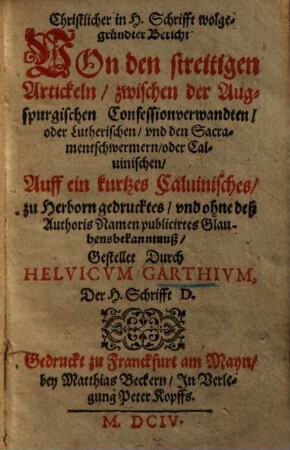 Christlicher in H. Schrifft wolge-
gründter Bericht
VOn den streitigen
Artickeln / zwischen der Aug-
spurgischen Confessionverwandten /
oder Lutherischen / vnd den Sacra-
mentschwermern / oder Cal-
uinischen /
Auff ein kurtzes Caluinisches /
zu Herborn gedrucktes / vnd ohne deß
Authoris Namen publicirtes Glau-
bensbekanntnuß /
Gestellet Durch
HELVICVM GARTHIVM,
Der H. Schrifft D.
Gedruckt zu Franckfurt am Mayn /
bey Matthias Beckern / In Verle-
gung Peter Kopffs.
M. DCIV.